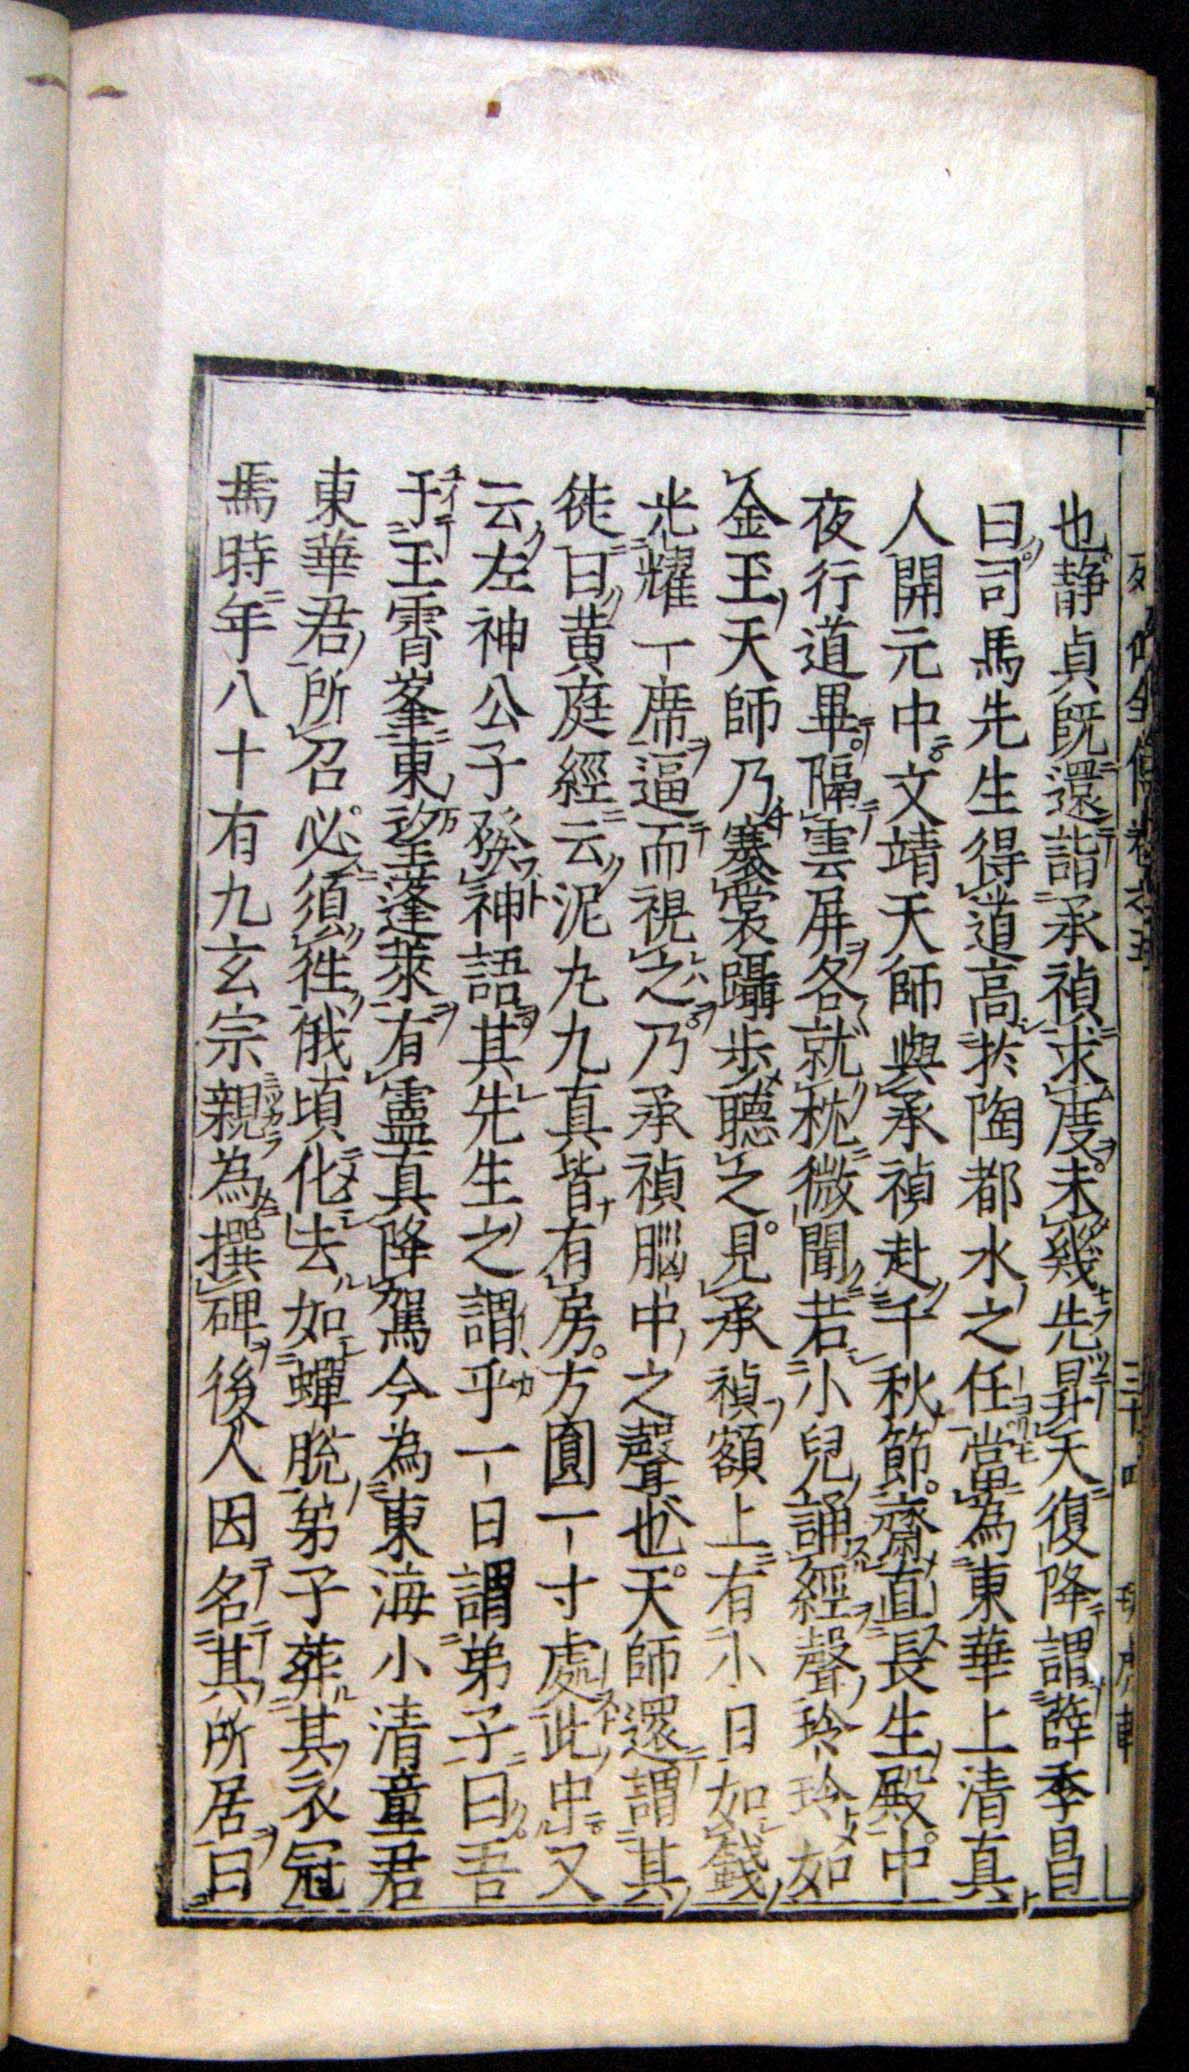 也静貞既還詣承禎求度未幾先昇天復降謂薛季昌
曰司馬先生得道高於陶都水之任當為東華上清真
人開元中文靖天師與承禎赴千秋節齋直長生殿中
夜行道畢隔雲屏各就枕微聞若小兒誦經聲玲玲如
金玉天師乃褰裳躡步聽之見承禎額上有小日如錢
光耀一席逼而視之乃承禎腦中之聲也天師還謂其
徒曰黄庭經云泥丸九真皆有房方圓一寸處此中又
云左神公子發神語其先生之謂乎一日謂弟子曰吾
于玉霄峯東望蓬萊有靈真降駕今為東海小清童君
東華君所召必須往俄頃化去如蟬脫弟子葬其衣冠
焉時年八十有九玄宗親為撰碑後人因名其所居曰